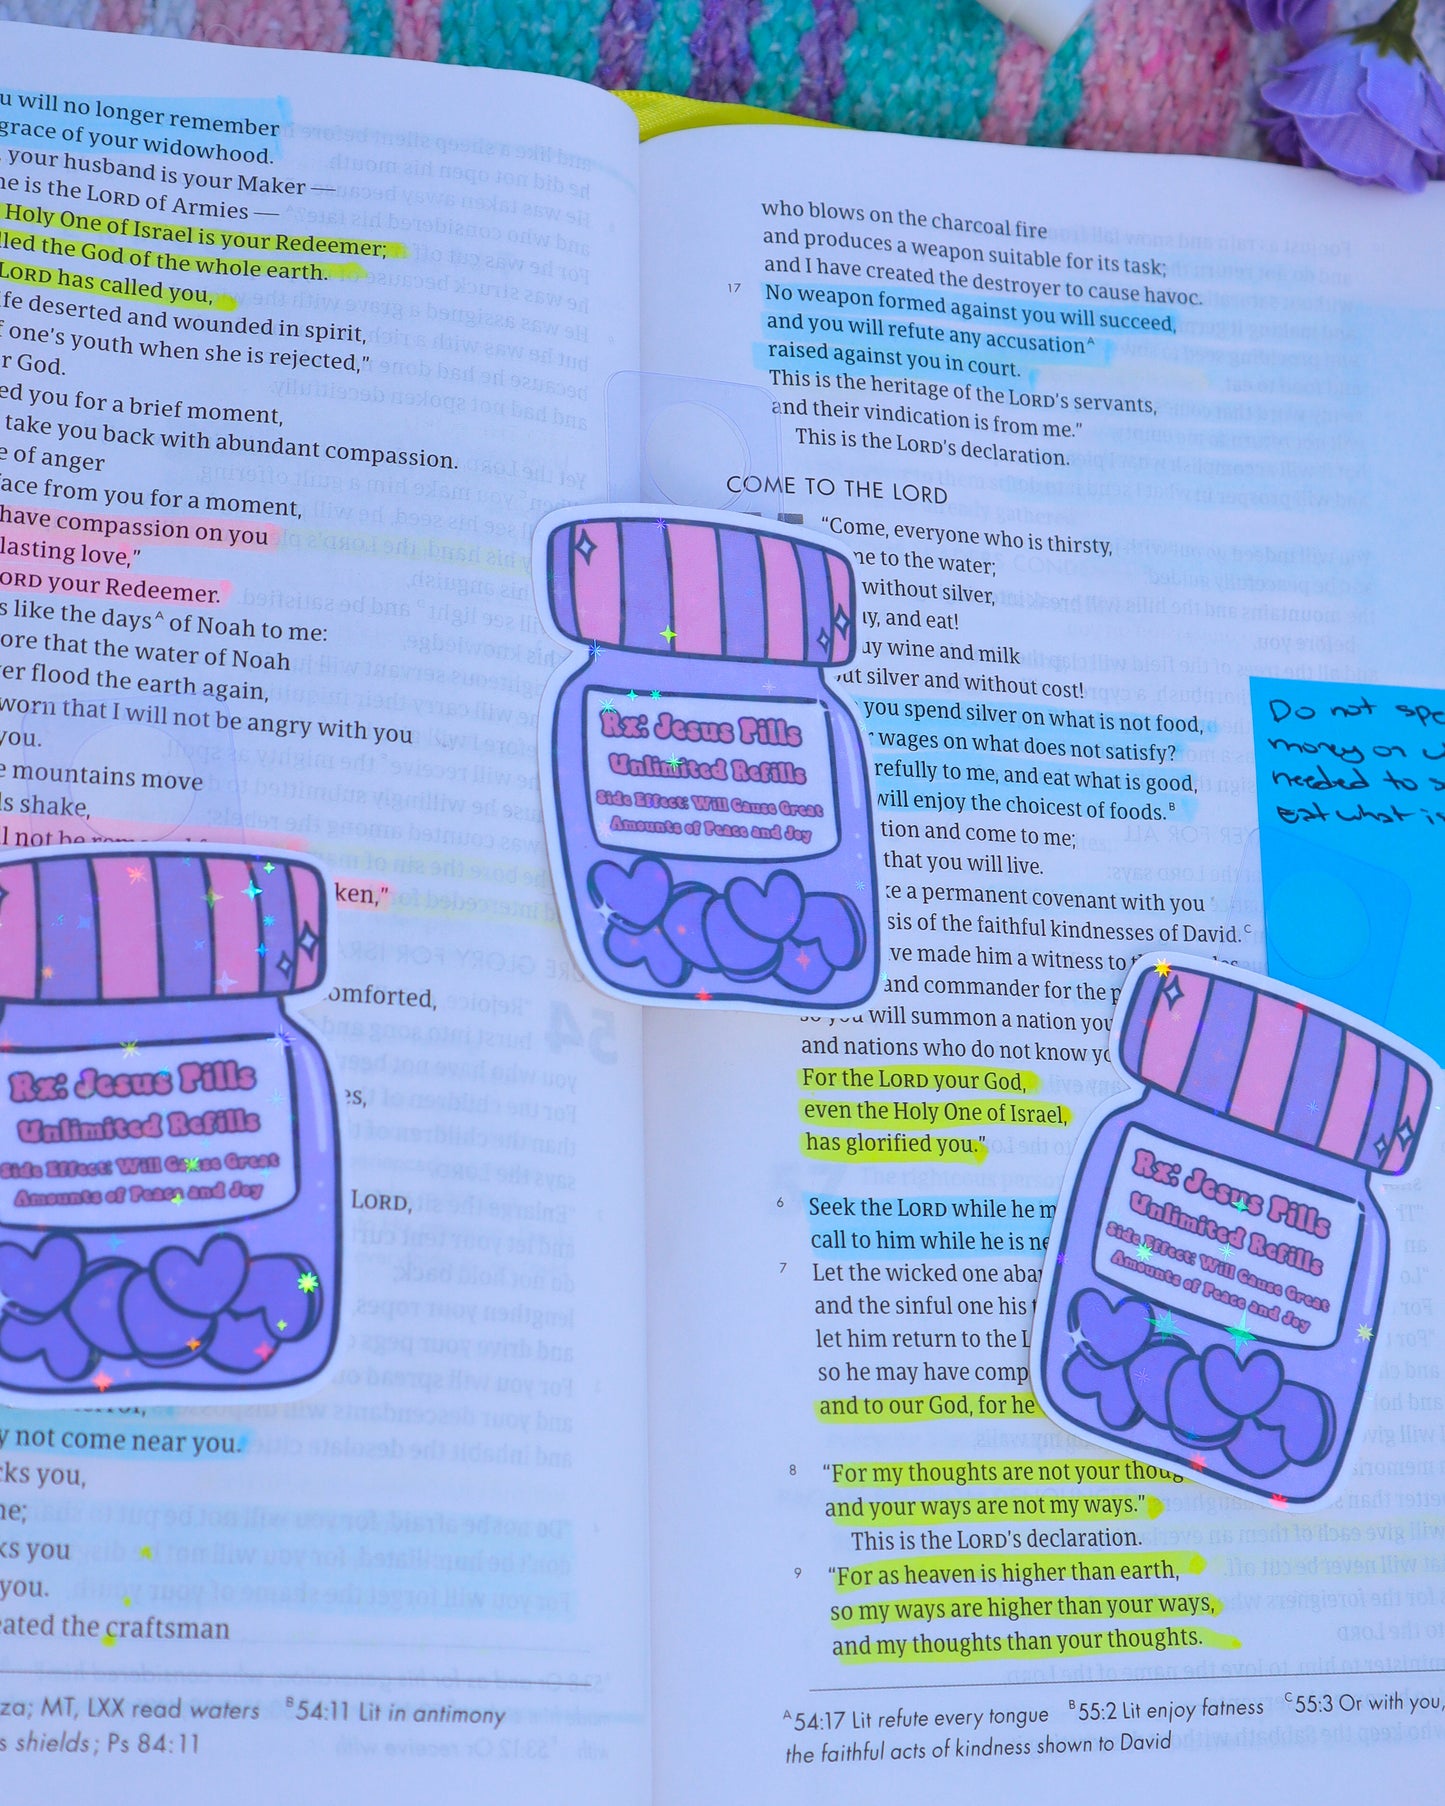 u will no longer remember
grace of your widowhood.
, your husband is your Maker —
ne is the LORD of Armies —
Holy One of Israel is your Redeemer;
lled the God of the whole earth.
LORD has called you,
fe deserted and wounded in spirit,
f one's youth when she is rejected,"
r God.
ed you for a brief moment,
take you back with abundant compassion.
e of anger
face from you for a moment,
have compassion on you
lasting love,"
ORD your Redeemer.
s like the days A of Noah to me:
ore that the water of Noah
er flood the earth again,
worn that I will not be angry with you
you.
e mountains move
ls shake,
ll not be
ken,"
omforted,
es,
LORD,
y not come near you.
cks you,
ne;
ks you
you.
eated the craftsman
za; MT, LXX read waters B 54:11 Lit in antimony
s shields; Ps 84:11
Rx: Jesus Pills
Unlimited Refills
Side Effect: Will Cause Great
Amounts of Peace and Joy
who blows on the charcoal fire
and produces a weapon suitable for its task;
and I have created the destroyer to cause havoc.
17 No weapon formed against you will succeed,
and you will refute any accusation A
raised against you in court.
This is the heritage of the LORD's servants,
and their vindication is from me."
This is the LORD's declaration.
COME TO THE LORD
"Come, everyone who is thirsty,
me to the water;
without silver,
uy, and eat!
uy wine and milk
out silver and without cost!
you spend silver on what is not food,
r wages on what does not satisfy?
refully to me, and eat what is good,
will enjoy the choicest of foods. B
tion and come to me;
that you will live.
ke a permanent covenant with you
sis of the faithful kindnesses of David. C
ve made him a witness to
and commander for the p
so you will summon a nation you
and nations who do not know yo
For the LORD your God,
even the Holy One of Israel,
has glorified you."
6 Seek the LORD while he m
call to him while he is ne
7 Let the wicked one aba
and the sinful one his t
let him return to the L
so he may have comp
and to our God, for he
8 "For my thoughts are not your thoug
and your ways are not my ways."
This is the LORD's declaration.
9 "For as heaven is higher than earth,
so my ways are higher than your ways,
and my thoughts than your thoughts.
A 54:17 Lit refute every tongue B 55:2 Lit enjoy fatness C 55:3 Or with you,
the faithful acts of kindness shown to David
Rx: Jesus Pills
Unlimited Refills
Side Effect: Will Cause Great
Amounts of Peace and Joy
Do not spe
money on w
needed to s
eat what is
Rx: Jesus Pills
Unlimited Refills
Side Effect: Will Cause Great
Amounts of Peace and Joy